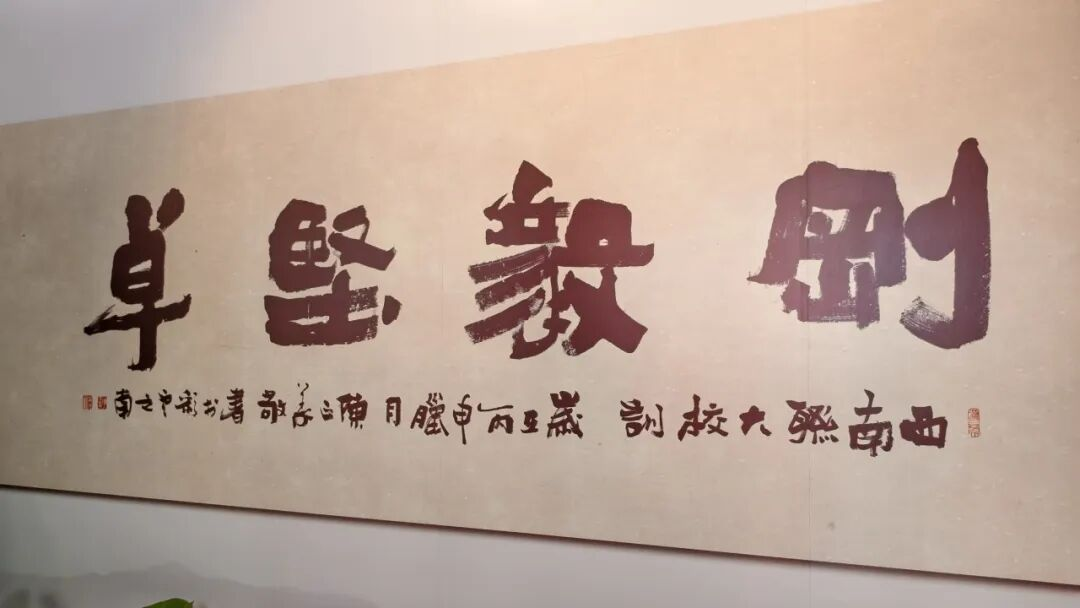 剛毅堅卓
西南聯大校訓 歲在丙申臘月陳正义敬書於彩雲之南